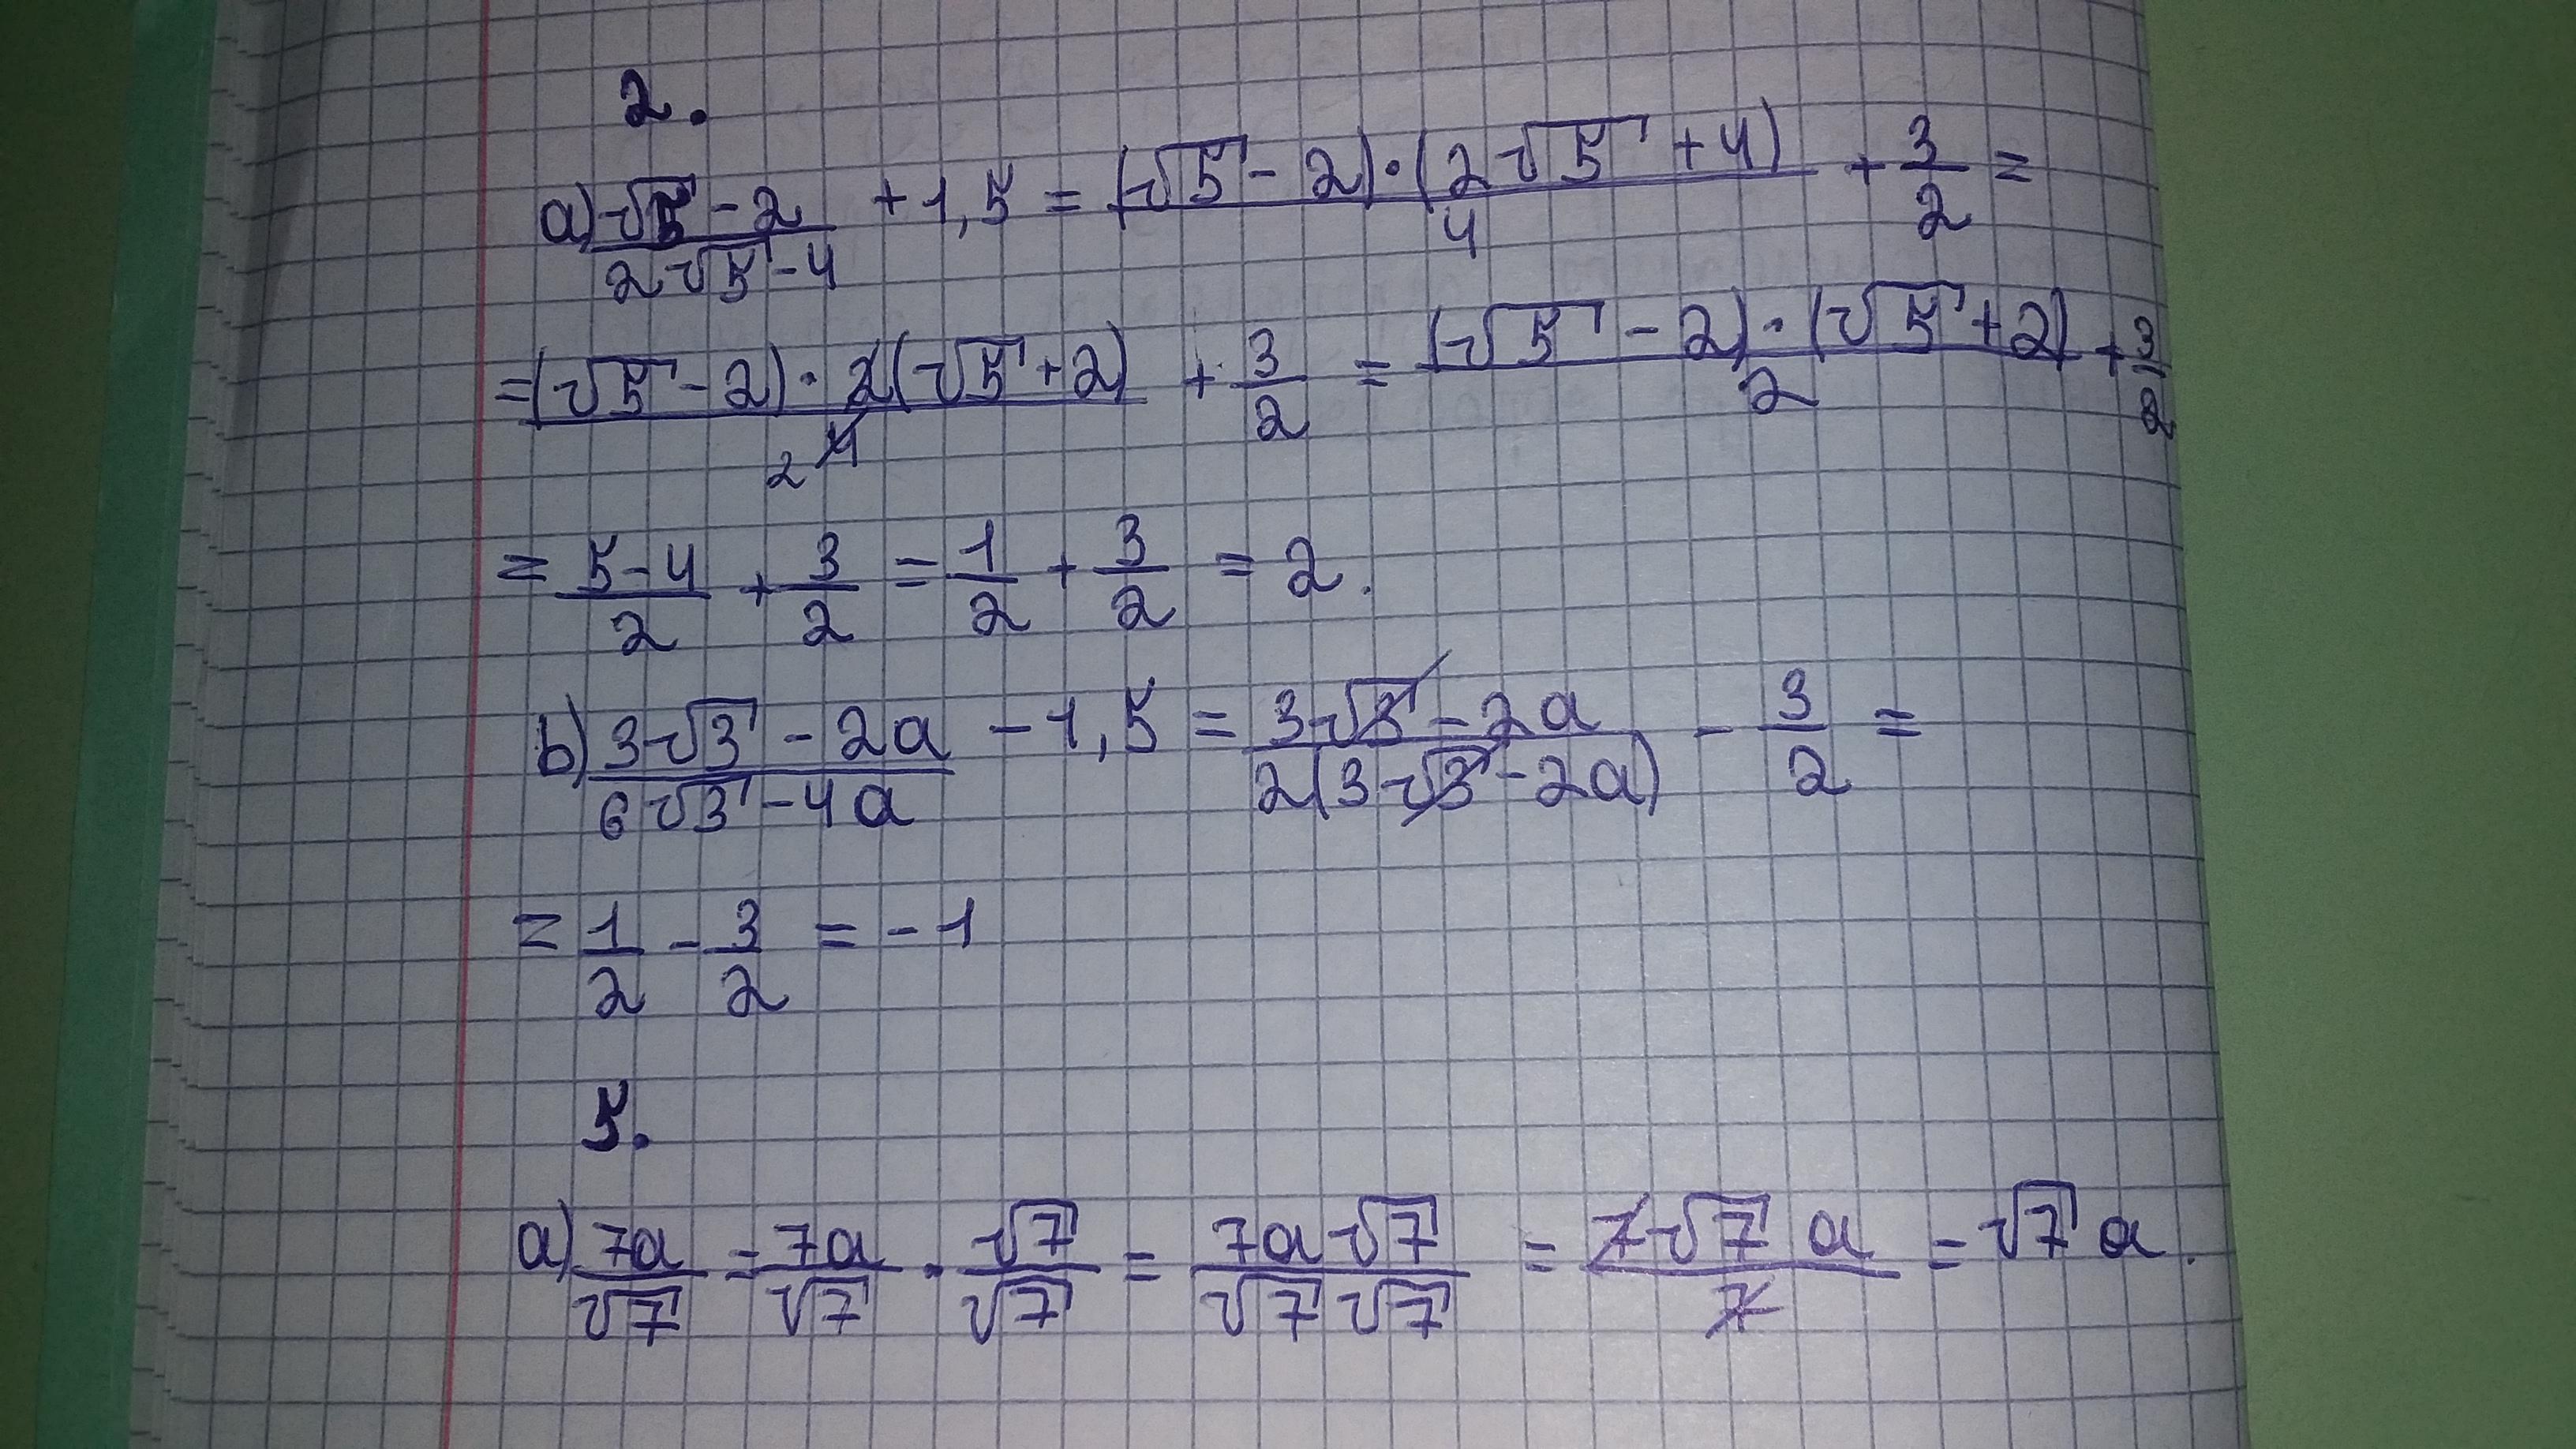 2.
a) (√5 - 2)/(2√5 - 4) + 1,5 = ((√5 - 2)·(2√5 + 4))/4 + 3/2 =
= ((√5 - 2)·2(√5 + 2))/4 2 + 3/2 = ((√5 - 2)·(√5 + 2))/2 + 3/2
= (5 - 4)/2 + 3/2 = 1/2 + 3/2 = 2.
b) (3√3 - 2a)/(6√3 - 4a) - 1,5 = (3√3 - 2a)/(2(3√3 - 2a)) - 3/2 =
= 1/2 - 3/2 = -1
5.
a) 7a/√7 = 7a/√7 · √7/√7 = 7a√7/√7√7 = 7√7 a/7 = √7 a.